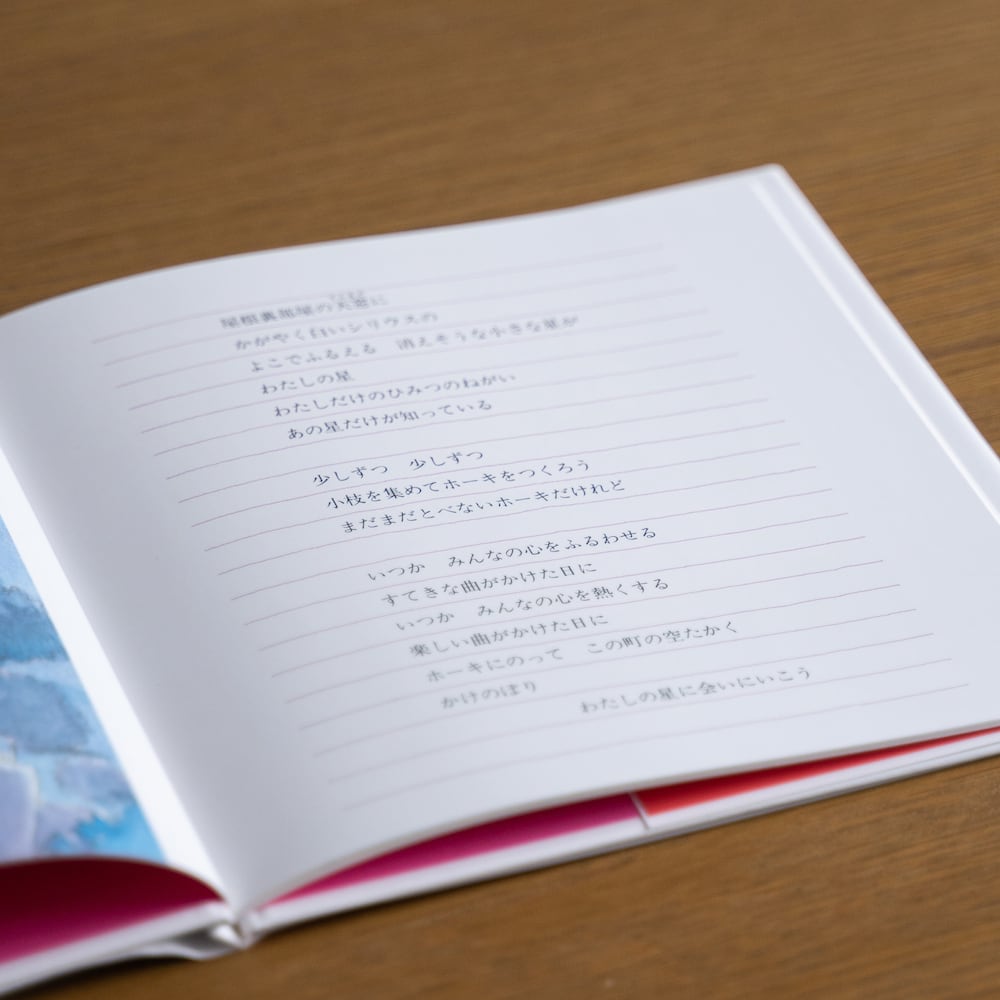 屋根裏部屋の天窓に
かがやく白いシリウスの
よこでふるえる　消えそうな小さな星が
わたしの星
わたしだけのひみつのねがい
あの星だけが知っている
少しずつ　少しずつ
小枝を集めてホーキをつくろう
まだまだとべないホーキだけれど
いつか　みんなの心をふるわせる
すてきな曲がかけた日に
いつか　みんなの心を熱くする
楽しい曲がかけた日に
ホーキにのって　この町の空たかく
かけのぼり
わたしの星に会いにいこう